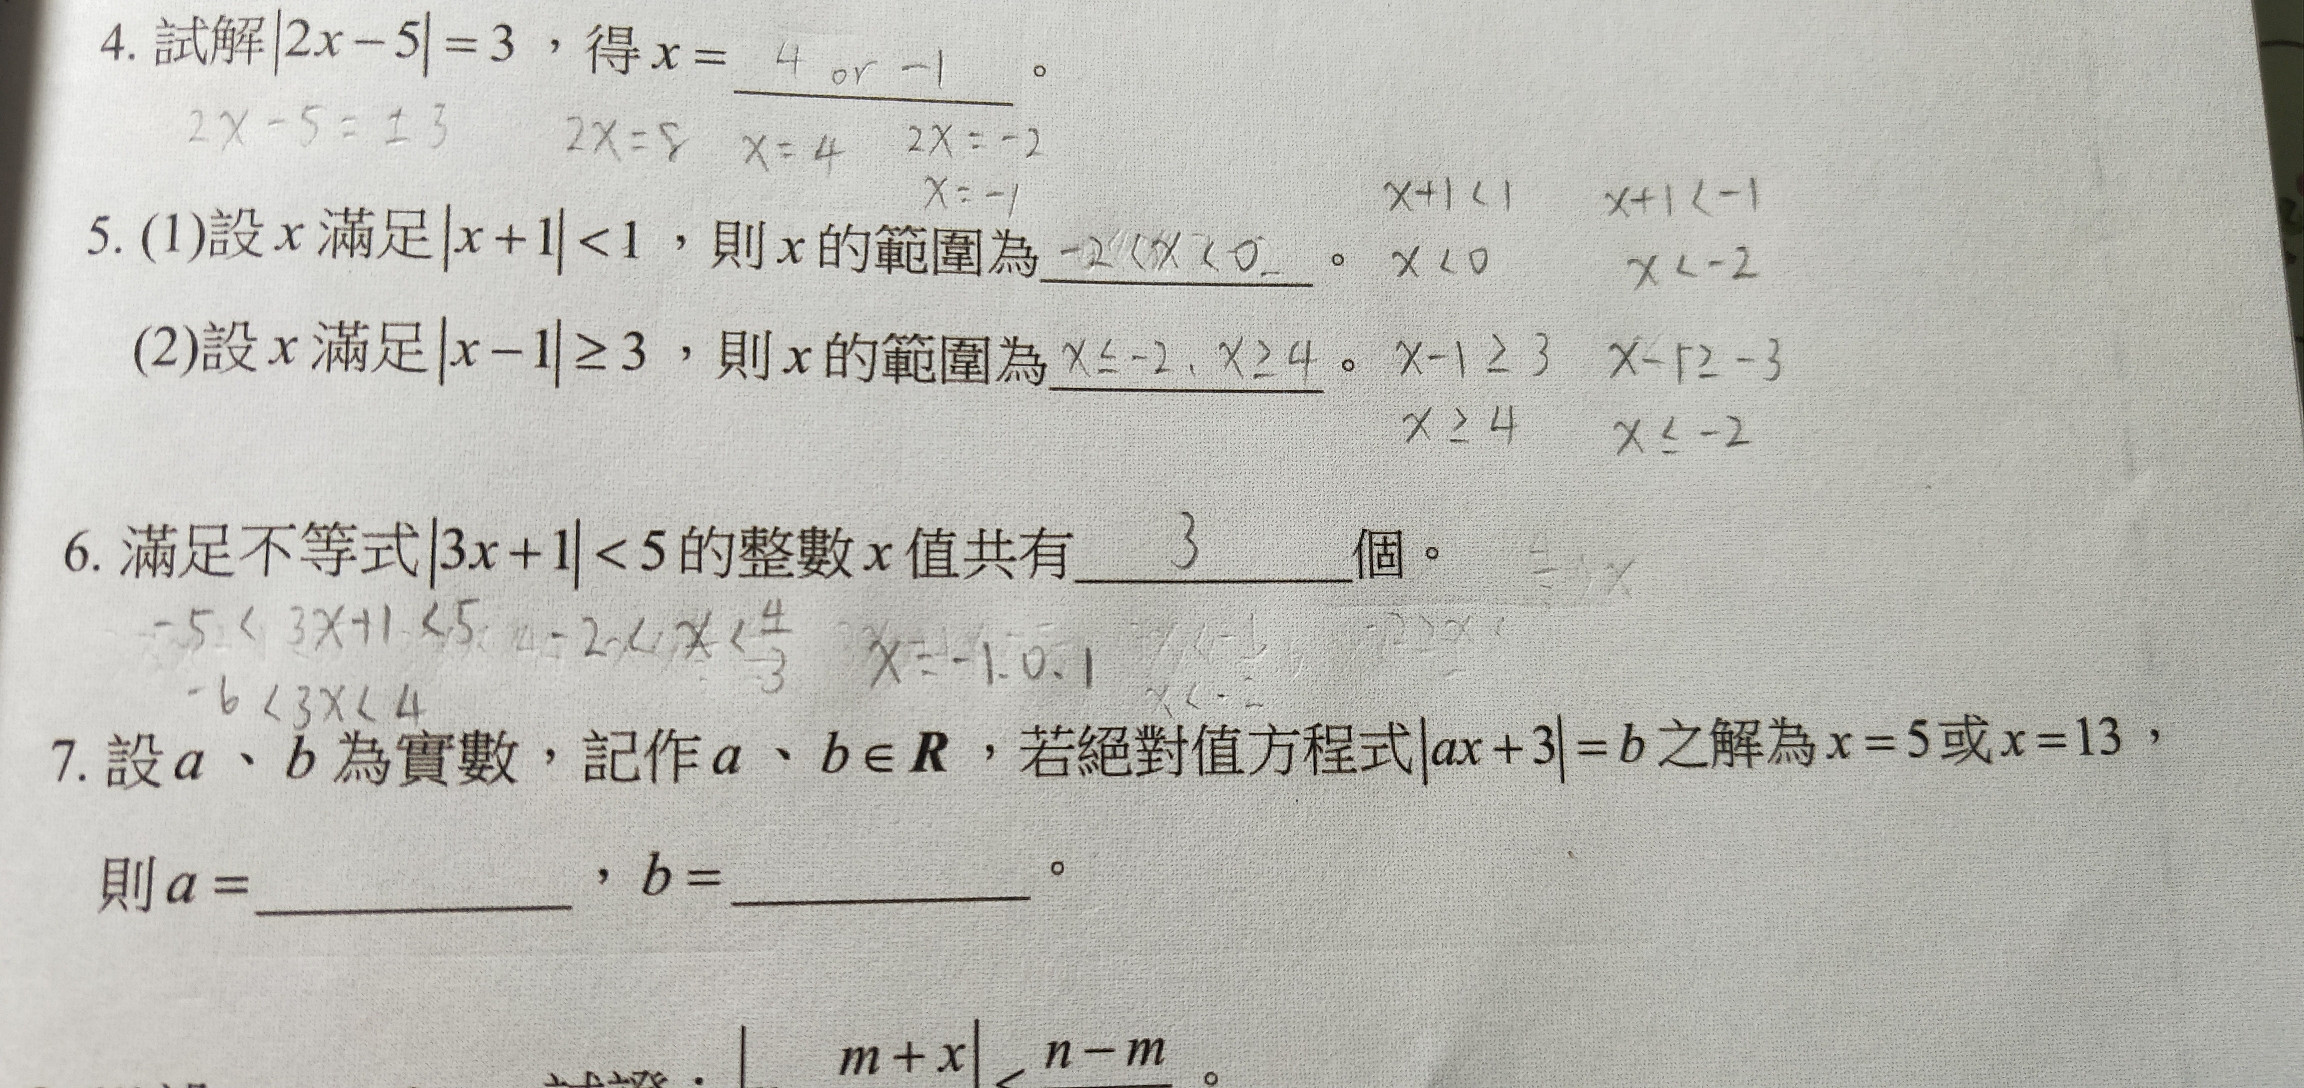 4. 試解|2x-5|=3，得x= 4 or -1 。
2x-5=±3 2x=8 x=4 2x=-2
x=-1
x+1<1 x+1<-1
5. (1)設x滿足|x+1|<1，則x的範圍為 -2<x<0 。 x<0 x<-2
(2)設x滿足|x-1|≥3，則x的範圍為 x≤-2、x≥4 。 x-1≥3 x-1≥-3
x≥4 x≤-2
6. 滿足不等式|3x+1|<5的整數x值共有 3 個。
-5<3x+1<5 -2<x<4/3 x=-1.0.1
-6<3x<4
7. 設a、b為實數，記作a、b∈R，若絕對值方程式|ax+3|=b之解為x=5或x=13，
則a= ，b= 。
m+x| < n-m 。